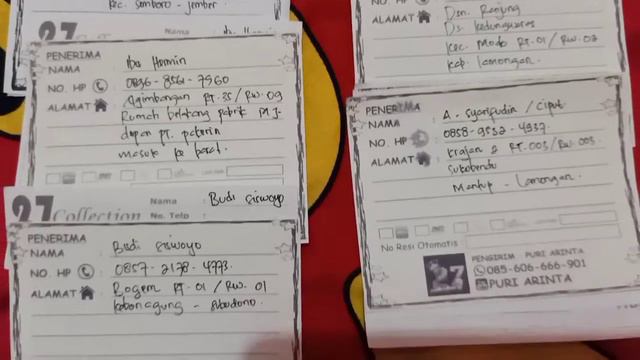 kec. Semboro - Jember
27
PENERIMA
NAMA : Ibu Hermin
NO. HP : 0896-8561-7960
ALAMAT : Ngimbangan RT.25 / RW.09
Rumah belakang pabrik
depan PT.
masuk ke barat.
27 Collection
Nama : Budi Siswoyo
No. Telp :
PENERIMA
NAMA : Budi Siswoyo
NO. HP : 0857-2178-4773.
ALAMAT : Bogem RT.01 / RW.01
Kebonagung - Sukodono
NO. HP
ALAMAT : Dsn. Ranjung
Ds. Kedungwaras
Kec. Modo RT.01 / RW.02
Kab. Lamongan.
PENERIMA
NAMA : A. Syarifudin / Ciput
NO. HP : 0858-9532-4937.
ALAMAT : Krajan 2 RT.003 / RW.003.
Sukobendu
Mantup - Lamongan.
No Resi Otomatis :
27
PENGIRIM PURI ARINTA
085-606-666-901
PURI ARINTA